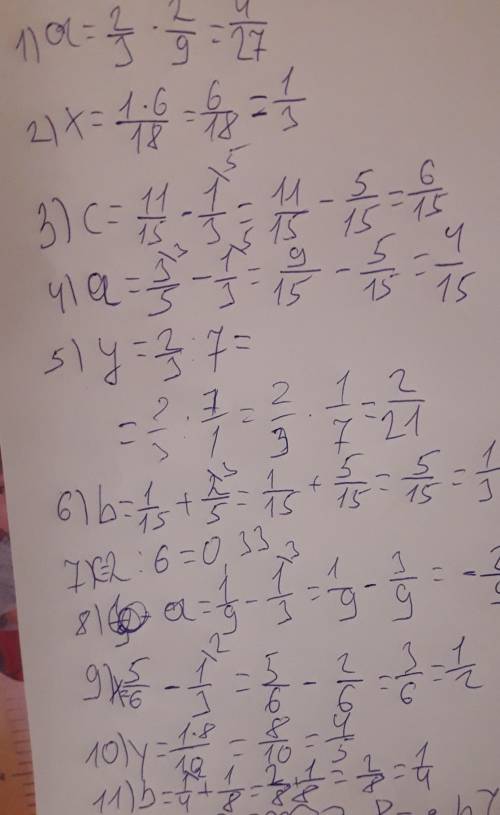 1) a = 2/3 · 2/9 = 4/27
2) x = 1·6/18 = 6/18 = 1/3
3) c = 11/15 - 1/3 ⁵ = 11/15 - 5/15 = 6/15
4) a = 3/5 ³ - 1/3 ⁵ = 9/15 - 5/15 = 4/15
5) y = 2/3 : 7 =
= 2/3 : 7/1 = 2/3 · 1/7 = 2/21
6) b = 1/15 + /5 ³ = 1/15 + 5/15 = 5/15 = 1/3
7) x=2 : 6 = 0 33
8) a = 1/9 - 1/3 ³ = 1/9 - 3/9 = -
9) x= 5/6 - 1/3 ² = 5/6 - 2/6 = 3/6 = 1/2
10) y = 1·8/10 = 8/10 = 4/5
11) b = 1/4 + 1/8 = 2/8 + 1/8 = 2/8 = 1/4